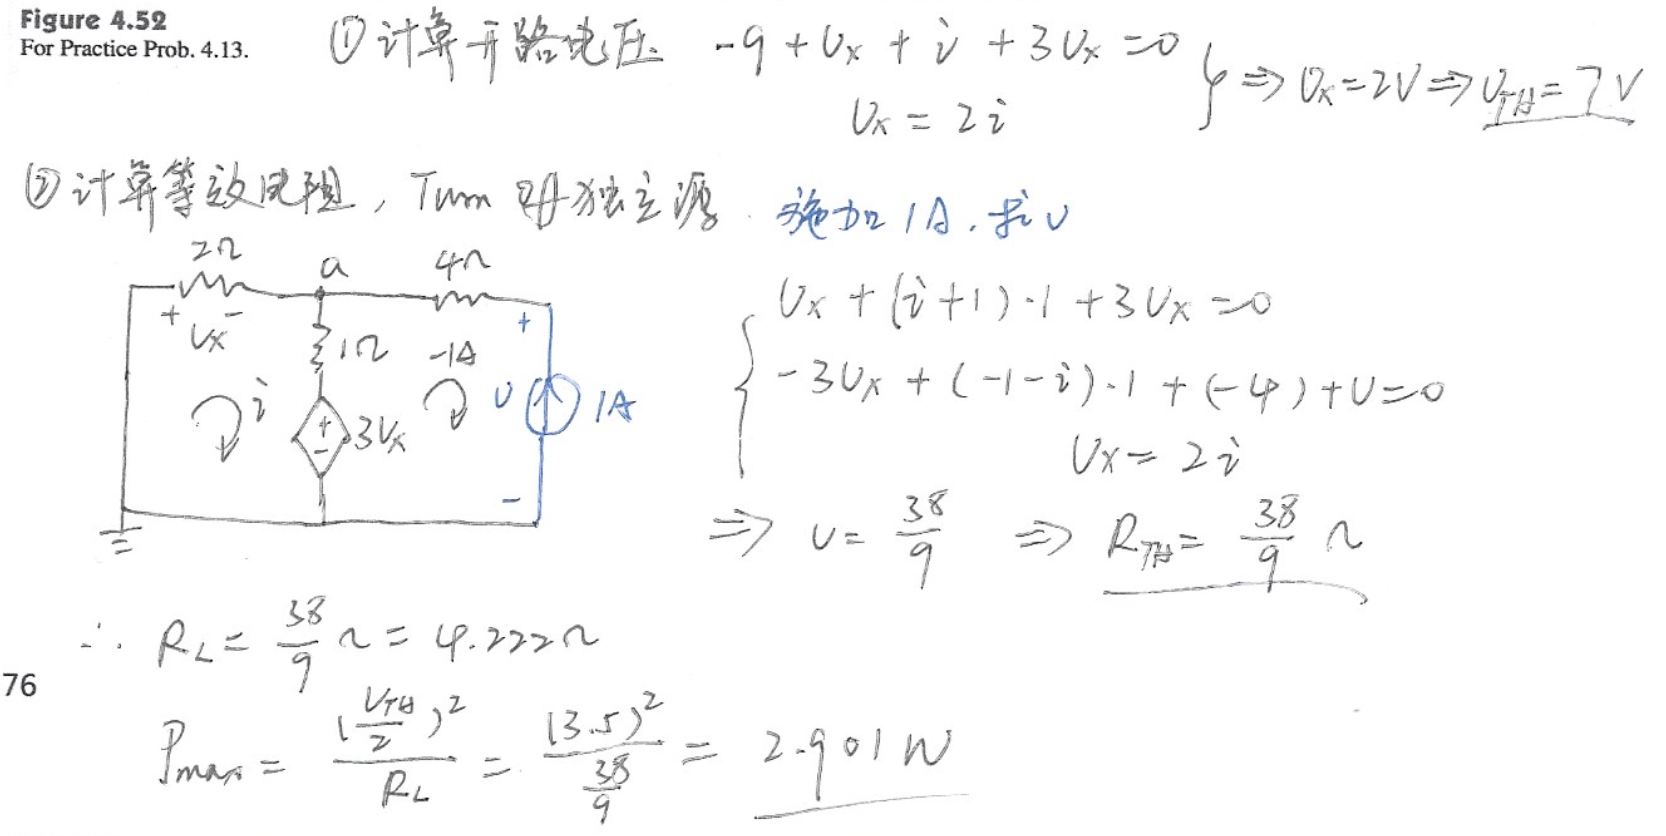 Figure 4.52
For Practice Prob. 4.13.
① 计算开路电压 -9 + Vx + i + 3Vx = 0
Vx = 2i
} ⇒ Vx = 2V ⇒ VTH = 7V
② 计算等效电阻, Turn 独立源. 施加 1A, 求 V
2Ω a 4Ω
+ Vx -
1Ω -1A +
i + - 3Vx V 1A
-
Vx + (i+1)·1 + 3Vx = 0
-3Vx + (-1-i)·1 + (-4) + V = 0
Vx = 2i
⇒ V = 38/9 ⇒ RTH = 38/9 Ω
∴ RL = 38/9 Ω = 4.222Ω
76
Pmax = (VTH/2)² / RL = (3.5)² / (38/9) = 2.901W